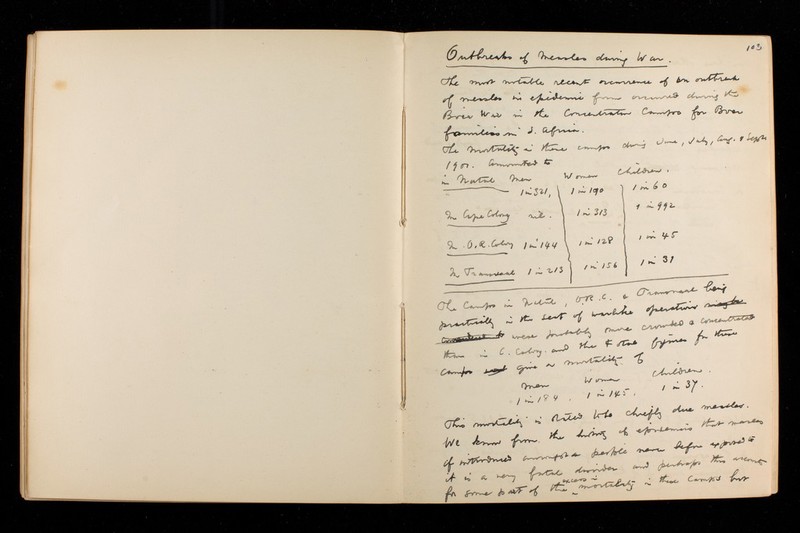 103
Outbreaks of Measles during War.
The most notable recent occurrence of an outbreak
of measles in epidemic form occurred during the
Boer War in the Concentration Camps for Boer
families in S. Africa.
The mortality in these camps during June, July, Aug. & Sept
1901. amounted to
in Natal Men Women Children.
1 in 321, 1 in 190 1 in 60
In Cape Colony nil. 1 in 313 1 in 992
In O.R. Colony 1 in 144 1 in 128 1 in 45
In Transvaal 1 in 213 1 in 156 1 in 31
The Camps in Natal, O.R.C. & Transvaal being
practically in the seat of warlike operations
were probably more crowded & concentrated
than in C. Colony. and the total figures for these
camps give a mortality of
Men Women Children.
1 in 184. 1 in 145. 1 in 37.
This mortality is stated to be chiefly due measles.
We know from the history of epidemics that measles
if introduced amongst a people never before exposed to
it is a very fatal disorder and perhaps this account
for some part of the excess in mortality in these Camps but